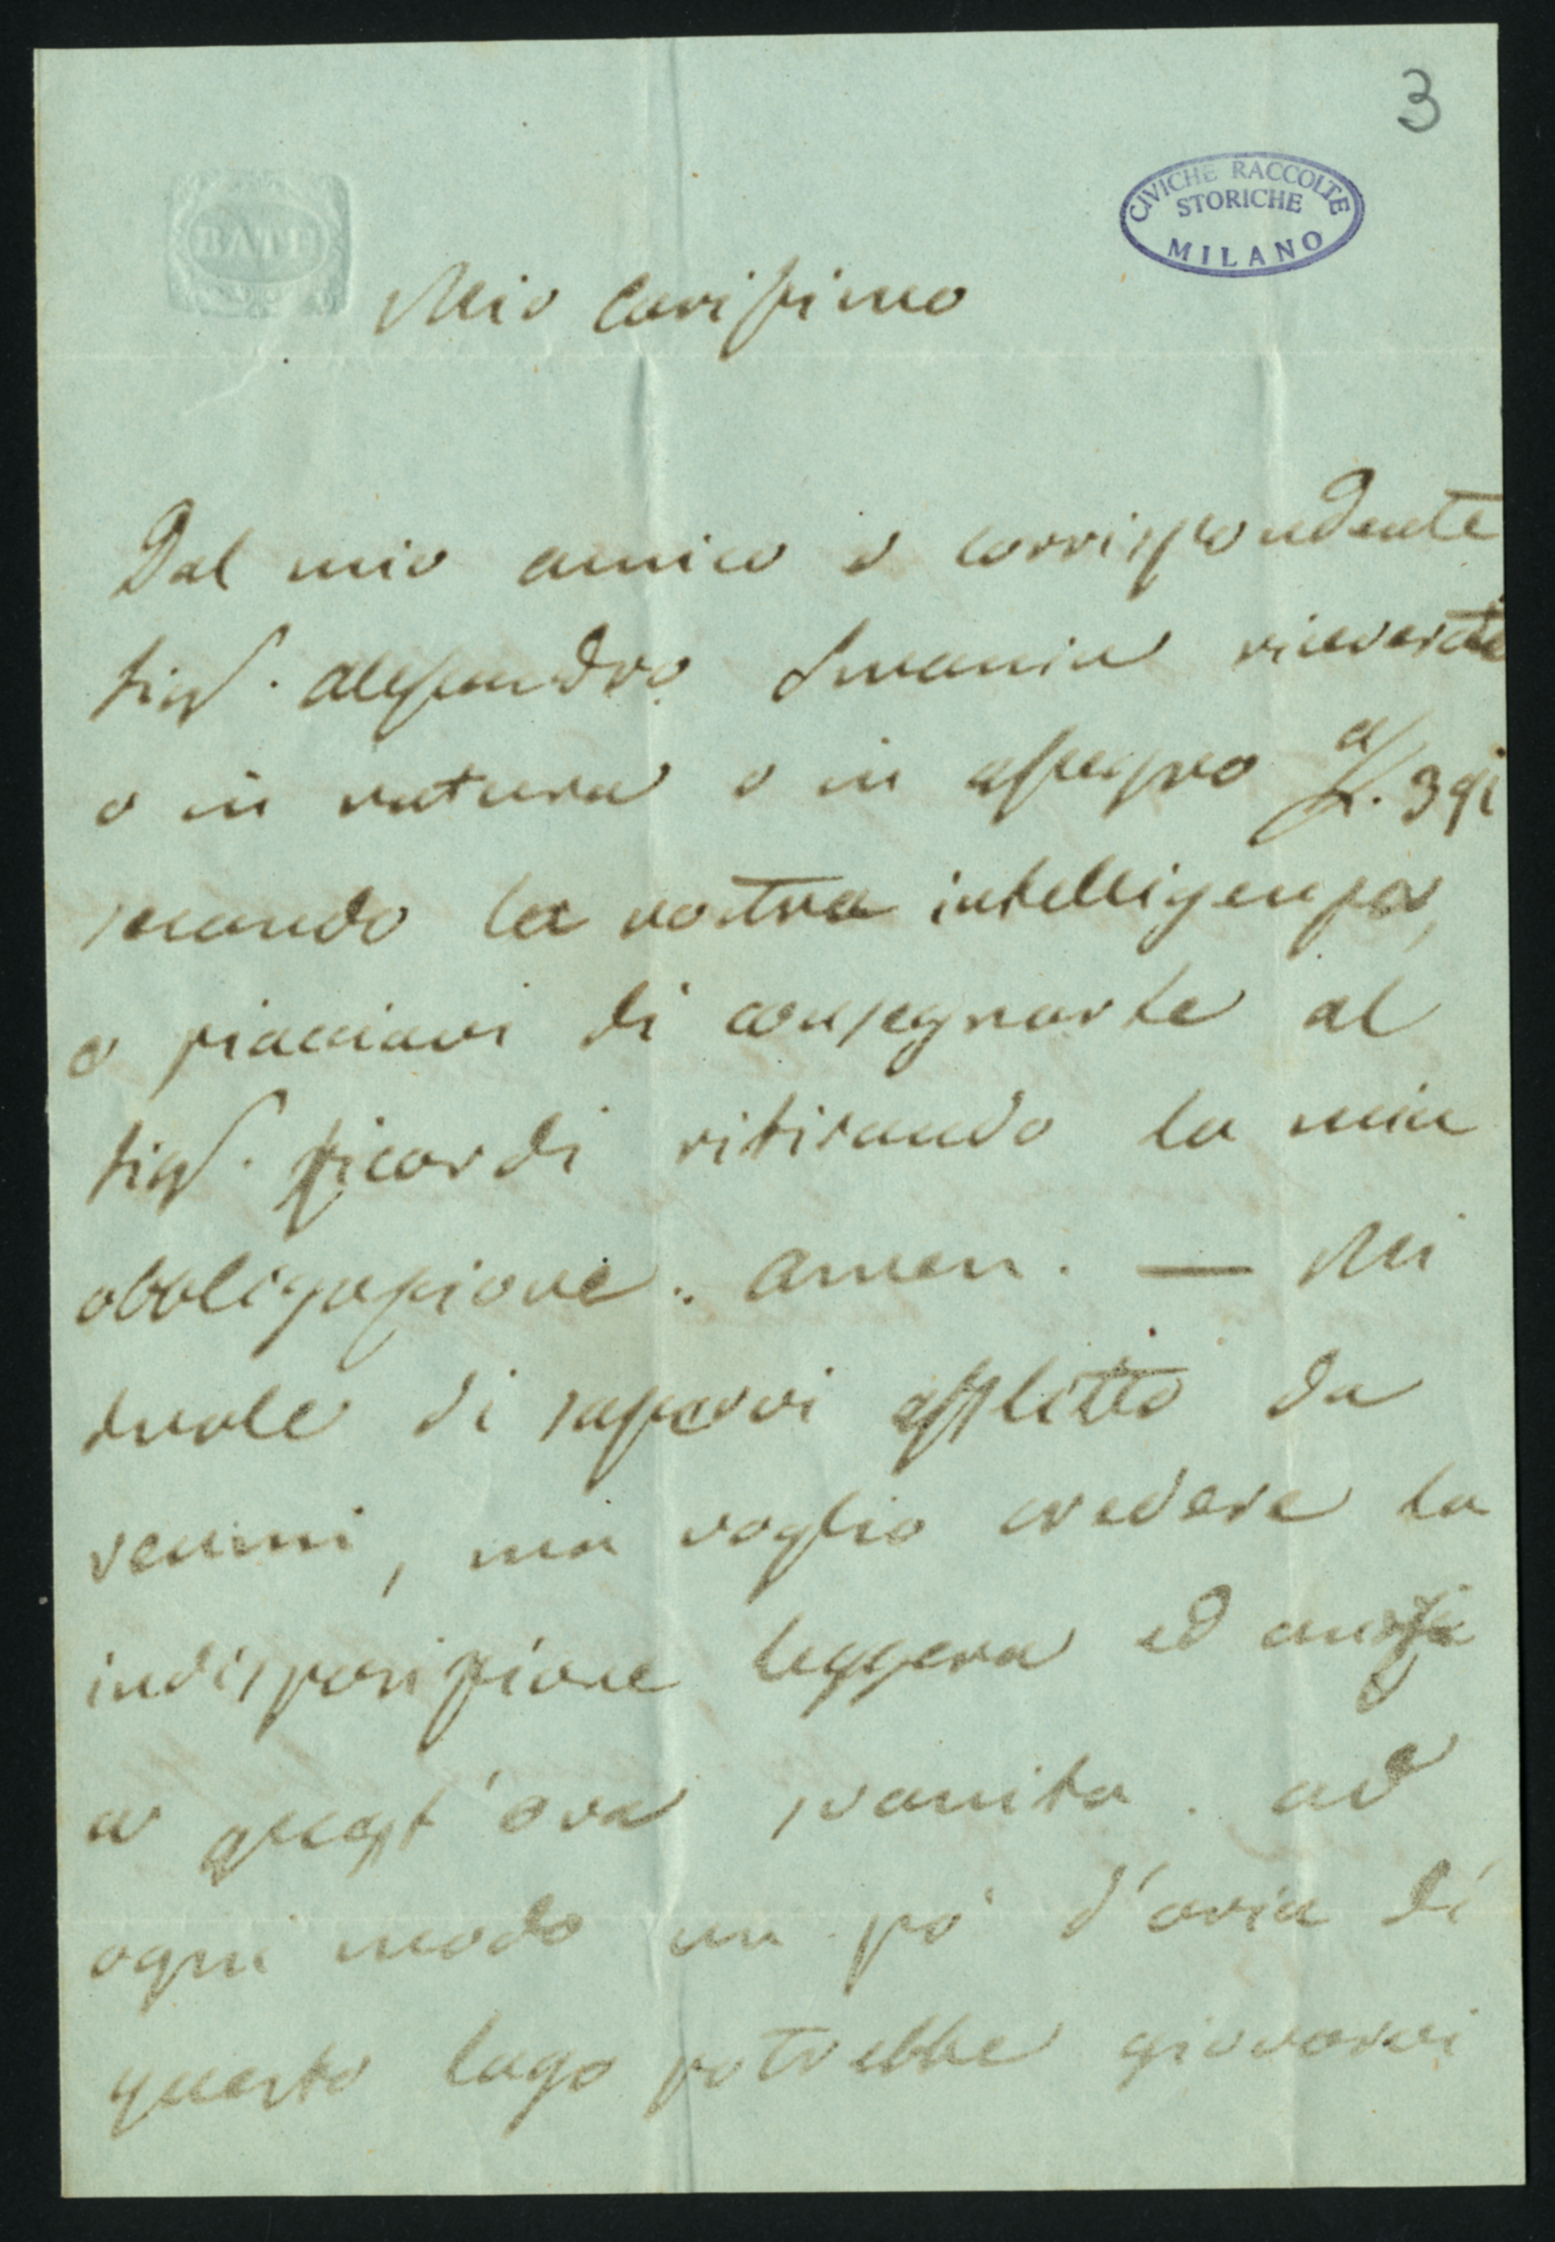 3
BATH
CIVICHE RACCOLTE
STORICHE
MILANO
Mio carissimo
Dal mio amico e corrispondente
sigr. Alessandro riceverete
o in natura o in assegno a/L. 391
secondo la vostra intelligenza,
e piacciavi di consegnarle al
sigr. Ricordi ritirando la mia
obbligazione. Amen. — Mi
duole di sapervi afflitto da
reumi, ma voglio credere la
indisposizione leggera ed anzi
a quest'ora svanita. Ad
ogni modo un pò d'aria di
questo lago potrebbe giovarvi